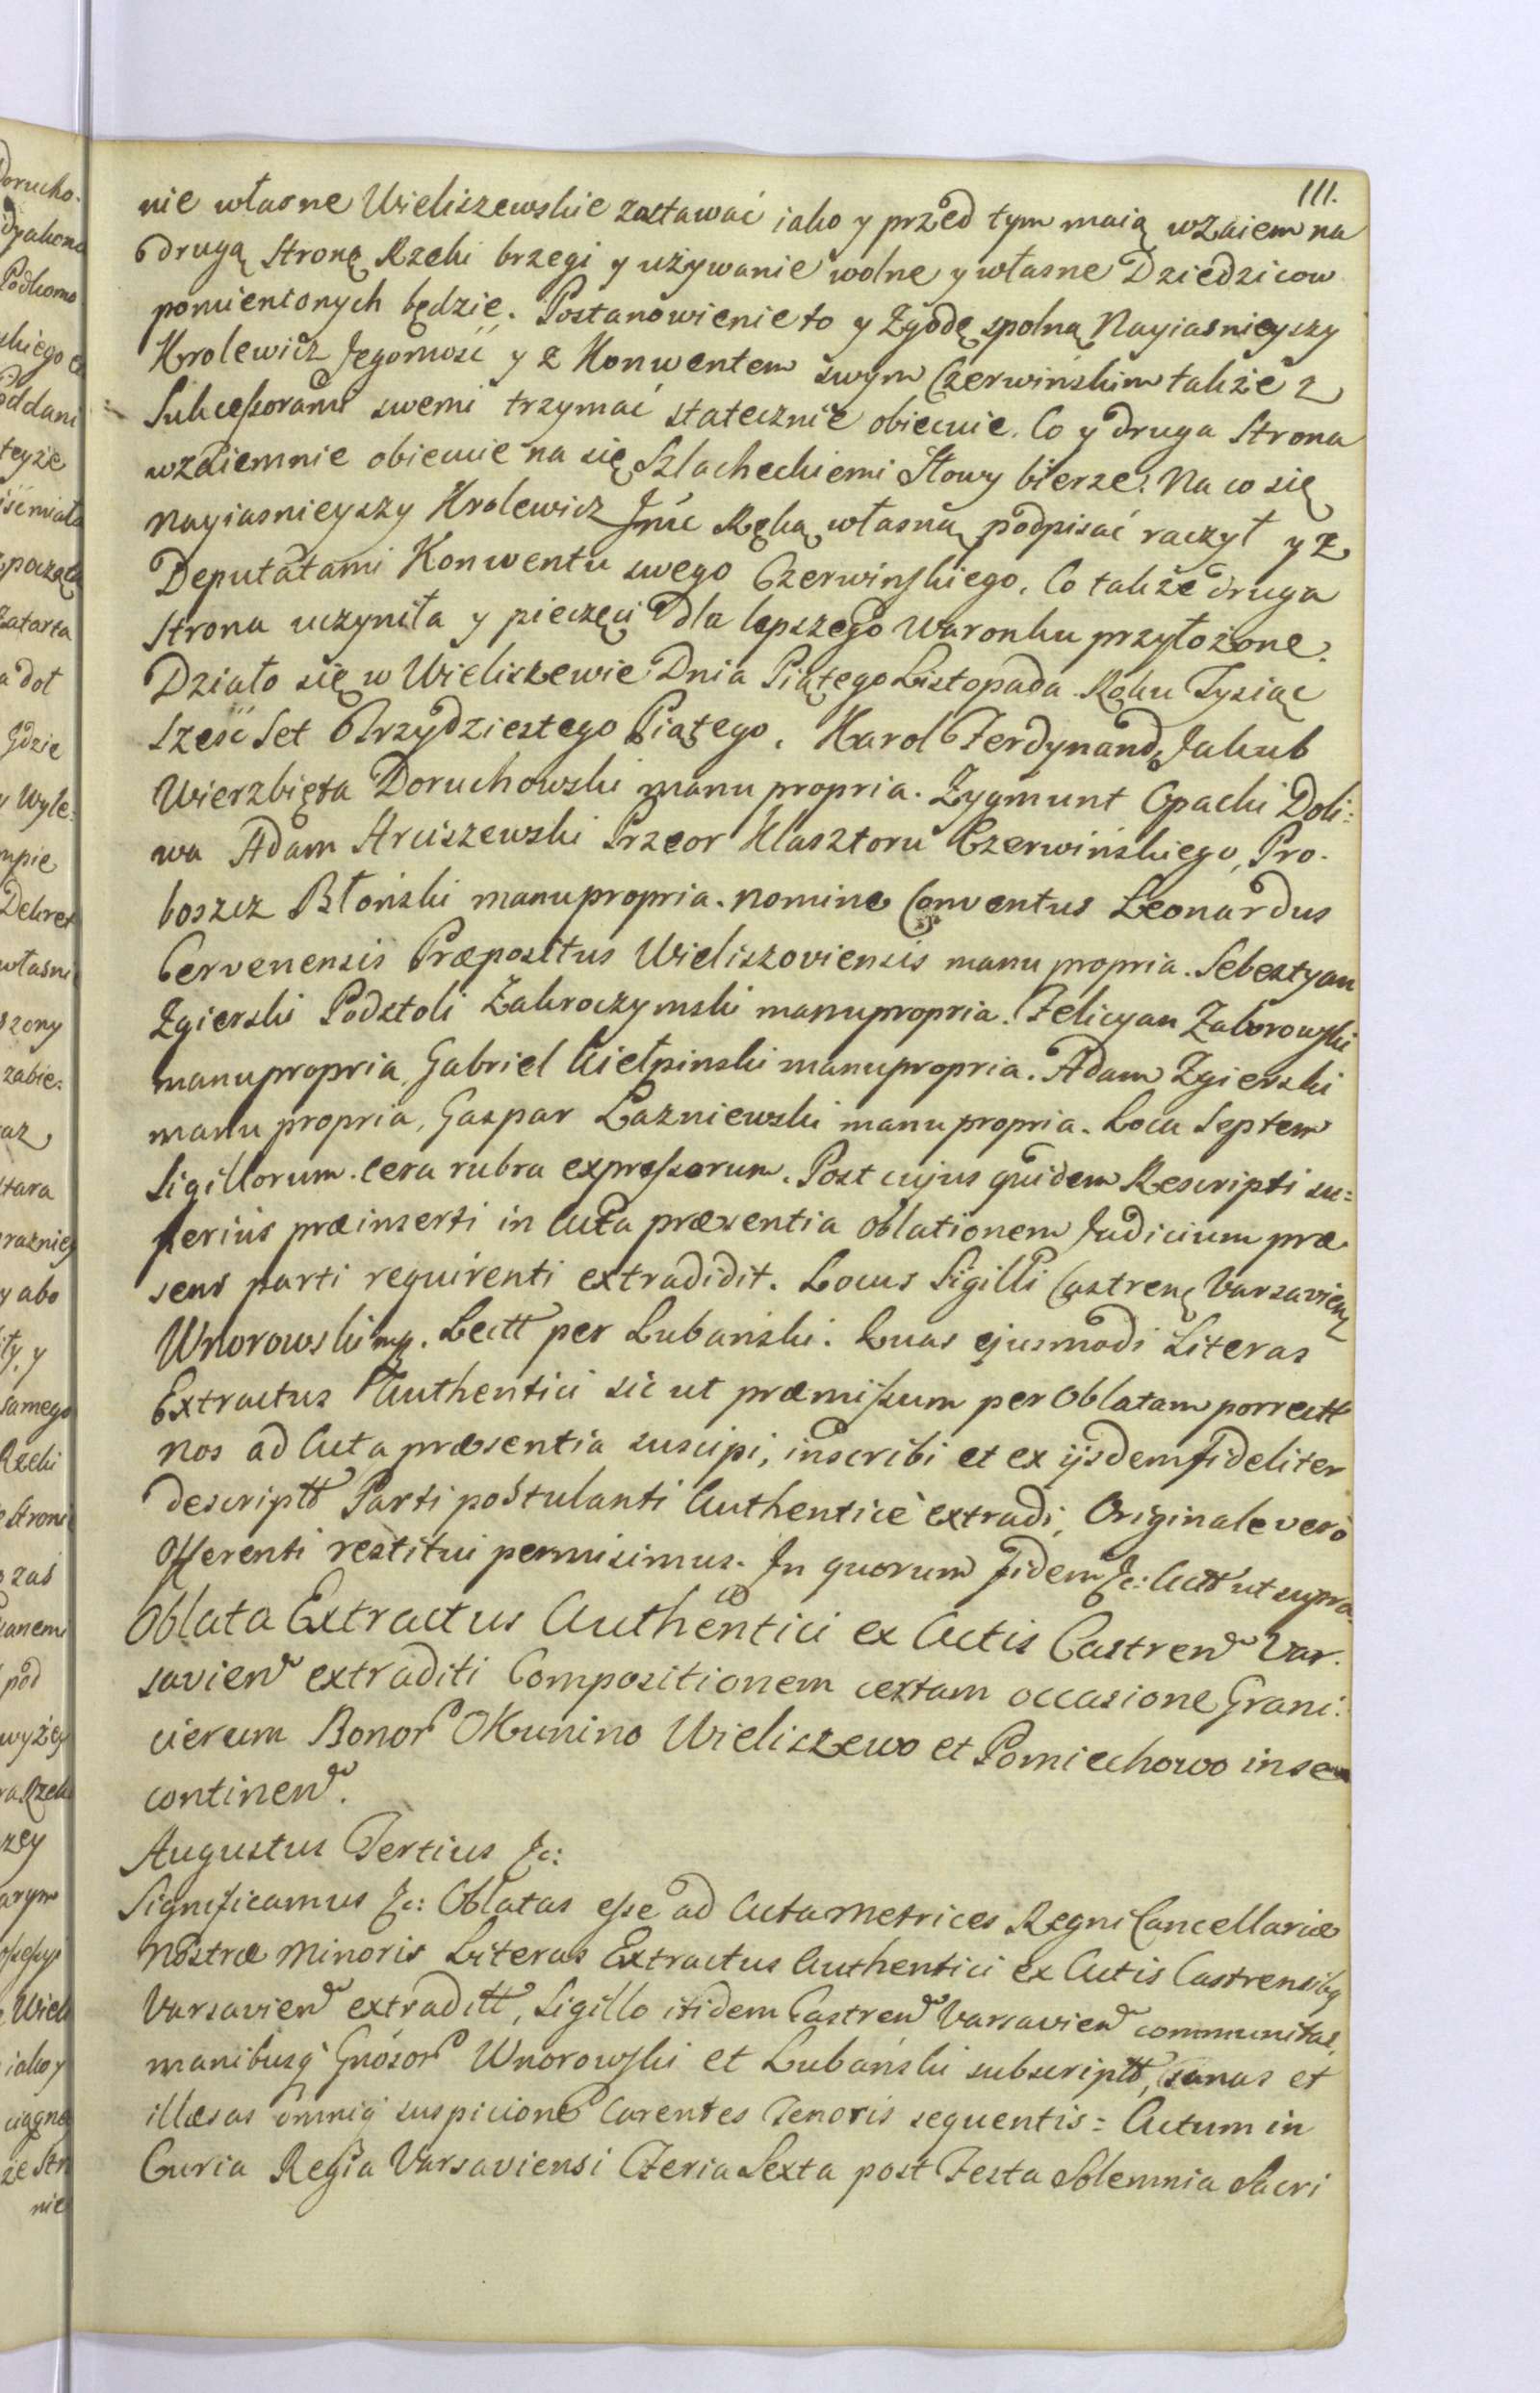 111.
nie własne Wieliszewskie zostawać iako y przed tym maią wzaiem na
drugą Stronę Rzeki brzegi y używanie wolne y własne Dziedzicow
pomienionych będzie. Postanowienie to y Zgodę spolną Nayiasnieyszy
Krolewicz Jegomość y z Konwentem swym Czerwińskim także z
Sukceßorami swemi trzymać statecznie obiecuie. Co y druga Strona
wzaiemnie obiecuie na się Szlacheckiemi Słowy bierze. Na co się
Nayiasnieyszy Krolewicz Jmć Ręką własną podpisać raczył y z
Deputatami Konwentu swego Czerwinskiego. Co także druga
Strona uczyniła y pieczęci dla lepszego Waronku przyłożone.
Działo się w Wieliszewie Dnia Piątego Listopada Roku Tysiąc
Sześć Set Trzydziestego Piątego. Karol Ferdynand, Jakub
Wierzbięta Doruchowski manu propria. Zygmunt Opacki Doli:
wa Adam Arciszewski Przeor Klasztoru Czerwińskiego, Pro-
boszcz Błoński manu propria. Nomine Conventus Leonardus
Cervenensis Præpositus Wieliszoviensis manu propria. Sebestyan
Zgierski Podstoli Zakroczymski manu propria. Felicyan Zaborowski
manu propria, Gabriel Cielpinski manu propria. Adam Zgierski
manu propria, Gaspar Lazniewski manu propria. Loca Septem
Sigillorum cera rubra expreßorum. Post cujus quidem Rescripti su:
perius præinserti in Acta præsentia Oblationem Judicium præ
sens parti requirenti extradidit. Locus Sigilli Castren Varsavien
Wnorowski mp. Lectt per Lubański. Quas ejusmodi Literas
Extractus Authentici sic ut præmißum per Oblatam porrectt
nos ad Acta præsentia suscipi, inscribi et ex ijsdem fideliter
descriptt Parti postulanti Authenticè extradi, Originale verò
Offerenti restitui permisimus. In quorum fidem &c: Actt ut supra.
Oblata Extractus Authentici ex Actis Castren Var-
savien extraditi Compositionem certam occasione Grani:
cierum Bonor Okunino Wieliszewo et Pomiechowo in se
continen.
Augustus Tertius &c:
Significamus &c: Oblatas eße ad Acta Metrices Regni Cancellariæ
Nostræ Minoris Literas Extractus Authentici ex Actis Castrensibq
Varsavien extraditt, Sigillo itidem Castren Varsavien communitas,
manibusq Gnosor Wnorowski et Lubański subscriptt, sanas et
illæsas omniq suspicione Carentes Tenoris sequentis: Actum in
Curia Regia Varsaviensi Feria Sexta post Festa Solemnia Sacri